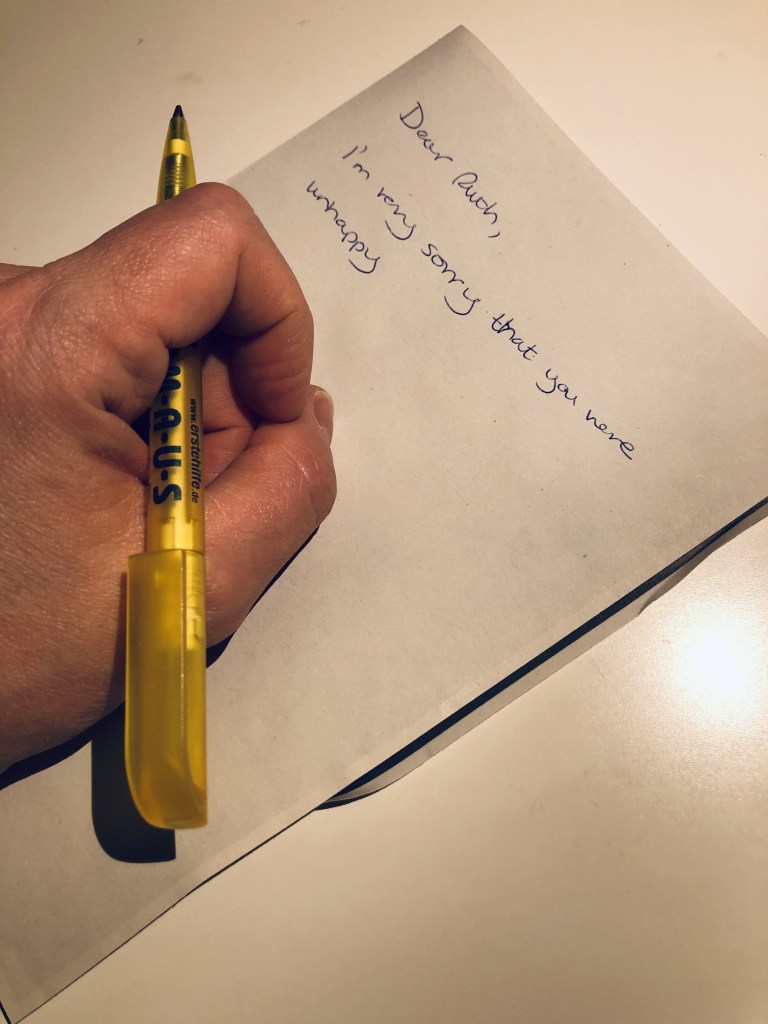 Dear Ruth,
I'm very sorry that you were
unhappy
M·A·U·S
www.erstehilfe.de